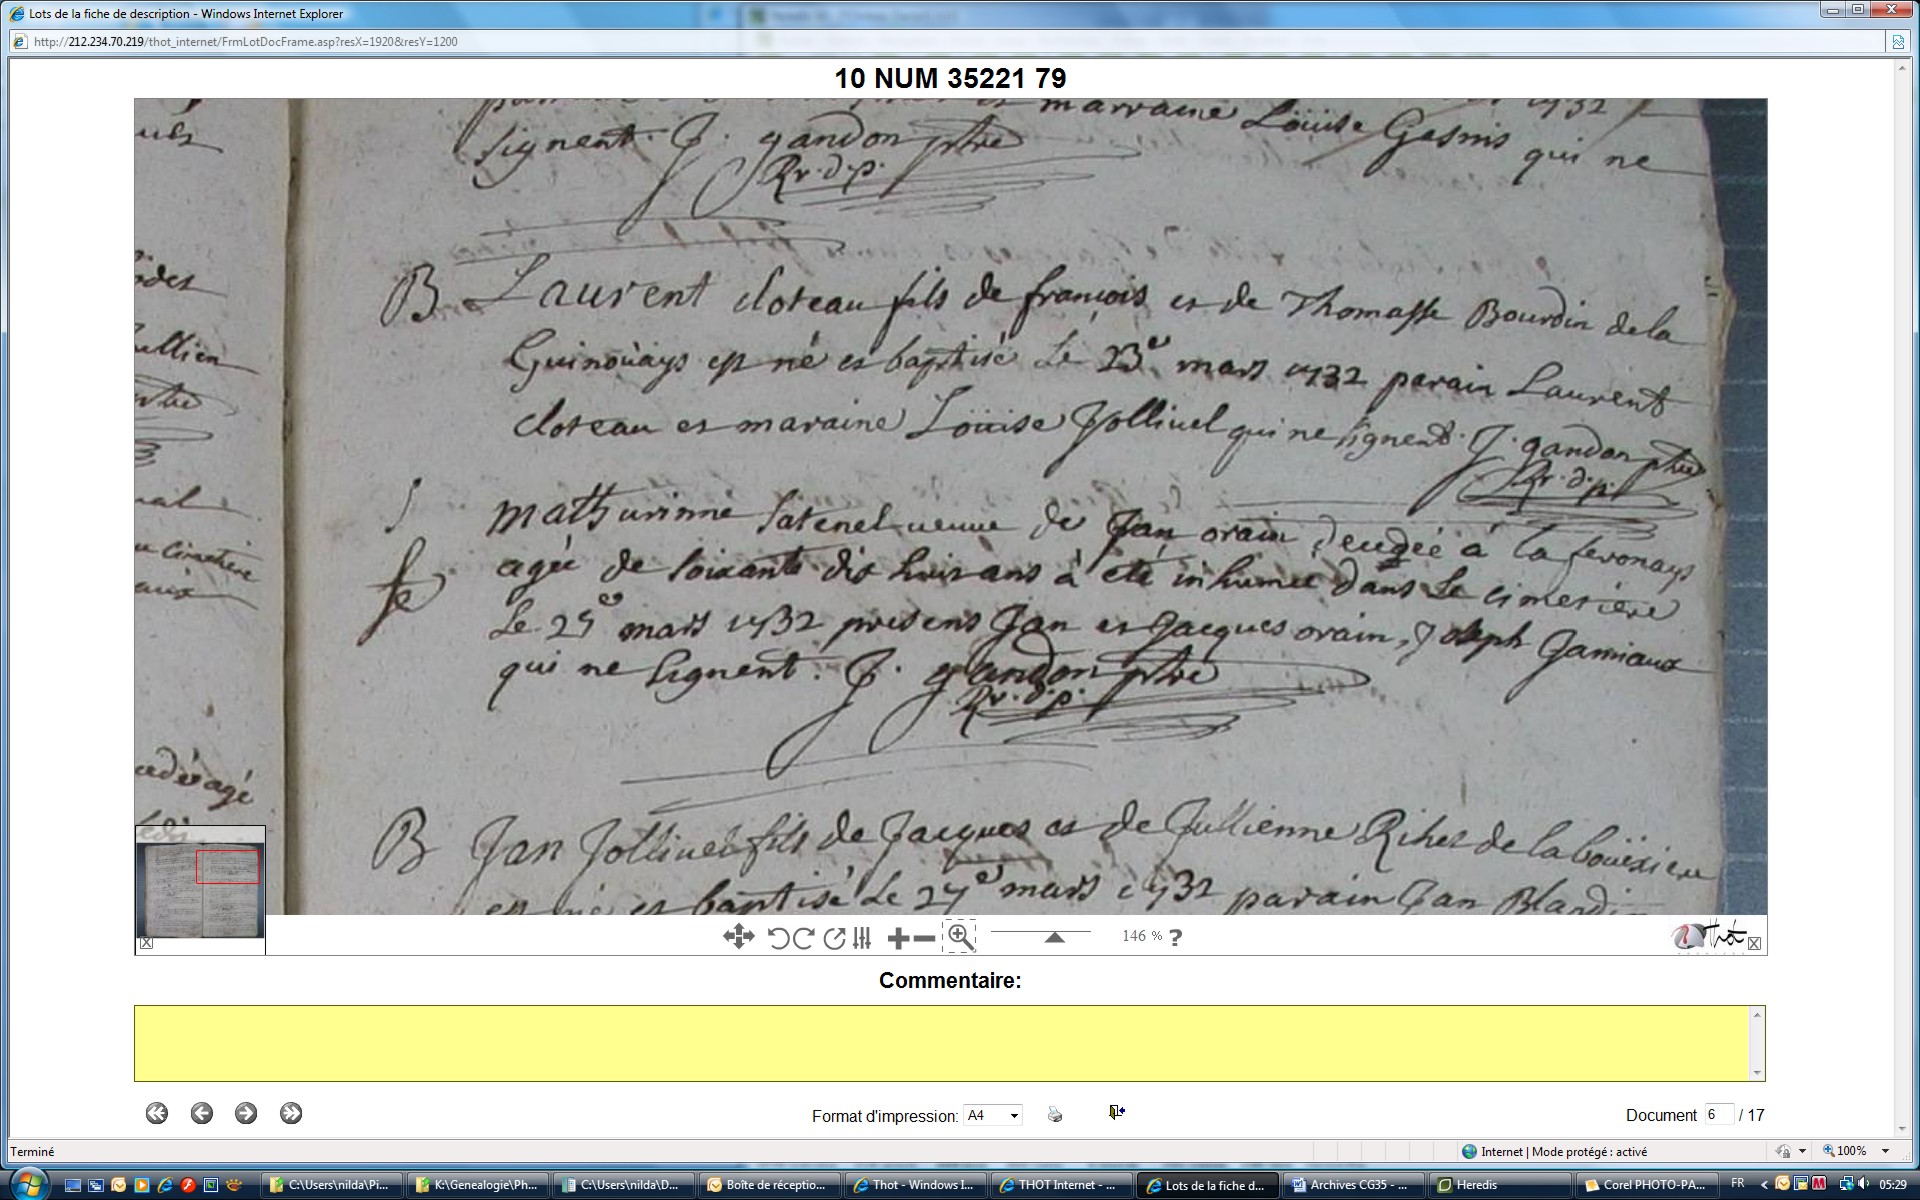 Lots de la fiche de description - Windows Internet Explorer
http://212.234.70.219/thot_internet/FrmLotDocFrame.asp?resX=1920&resY=1200
10 NUM 35221 79
marraine Loüise Gesnis qui ne
signent. J. gandon ptre
Rr. d. p.
B. Laurent cloteau fils de francois et de Thomasse Bourdin de la
Guinoüays est né et baptisé le 23e mars 1732 parain Laurent
cloteau et maraine Loüise Jollivel qui ne signent. J. gandon ptre
Rr. d. p.
S mathurinne satenel veuve de Jan orain, decedée à la fevonays
fe agée de soixante dix huit ans à eté inhumée dans le cimetiere
Le 25e mars 1732 presens Jan et Jacques orain, Joseph Jamiaux
qui ne signent. J. gandon ptre
Rr. d. p.
B Jan Jollivel fils de Jacques et de Jullienne Riher de la boüexiere
est né et baptisé le 27e mars 1732 parain Jan Blandin
146 % ?
Thot
Commentaire:
Format d'impression: A4
Document 6 / 17
Terminé
Internet | Mode protégé : activé
100%
C:\Users\nilda\Pi...
K:\Genealogie\Ph...
C:\Users\nilda\D...
Boîte de réceptio...
Thot - Windows I...
THOT Internet - ...
Lots de la fiche d...
Archives CG35 - ...
Heredis
Corel PHOTO-PA...
FR
05:29